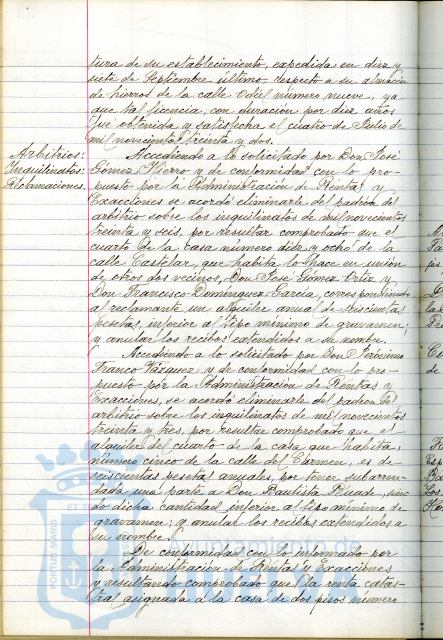 tura de su establecimiento, expedida en diez y
siete de Septiembre último, respecto a su almacén
de hierros de la calle Odiel número nueve, ya
que tal licencia, con duración por diez años
fué obtenida y satisfecha el cuatro de Julio de
mil novecientos treinta y dos.
Arbitrios:
Inquilinatos:
Reclamaciones.
Accediendo a lo solicitado por Don José
Gómez Yerro y de conformidad con lo pro-
puesto por la Administración de Rentas y
Exacciones se acordó eliminarle del padrón del
arbitrio sobre los inquilinatos de mil novecientos
treinta y seis, por resultar comprobado que el
cuarto de la casa número diez y ocho de la
calle Castelar, que habita lo hace en unión
de otros dos vecinos, Don José Gómez Ortiz y
Don Francisco Domínguez García, correspondiendo
al reclamante un alquiler anual de seiscientas
pesetas, inferior al tipo mínimo de gravamen;
y anular los recibos extendidos a su nombre.
Accediendo a lo solicitado por Don Jerónimo
Franco Vázquez, y de conformidad con lo pro-
puesto por la Administración de Rentas y
Exacciones, se acordó eliminarle del padrón del
arbitrio sobre los inquilinatos de mil novecientos
treinta y tres, por resultar comprobado que el
alquiler del cuarto de la casa que habita,
número cinco de la calle del Carmen, es de
seiscientas pesetas anuales, por tener subarren-
dada una parte a Don Bautista, sien-
do dicha cantidad inferior al tipo mínimo de
gravamen; y anular los recibos extendidos a
su nombre.
De conformidad con lo informado por
la Administración de Rentas y Exacciones
y resultando comprobado que la renta catas-
tral asignada a la casa de dos pisos número
PORTUS MARIS
Ayuntamiento de